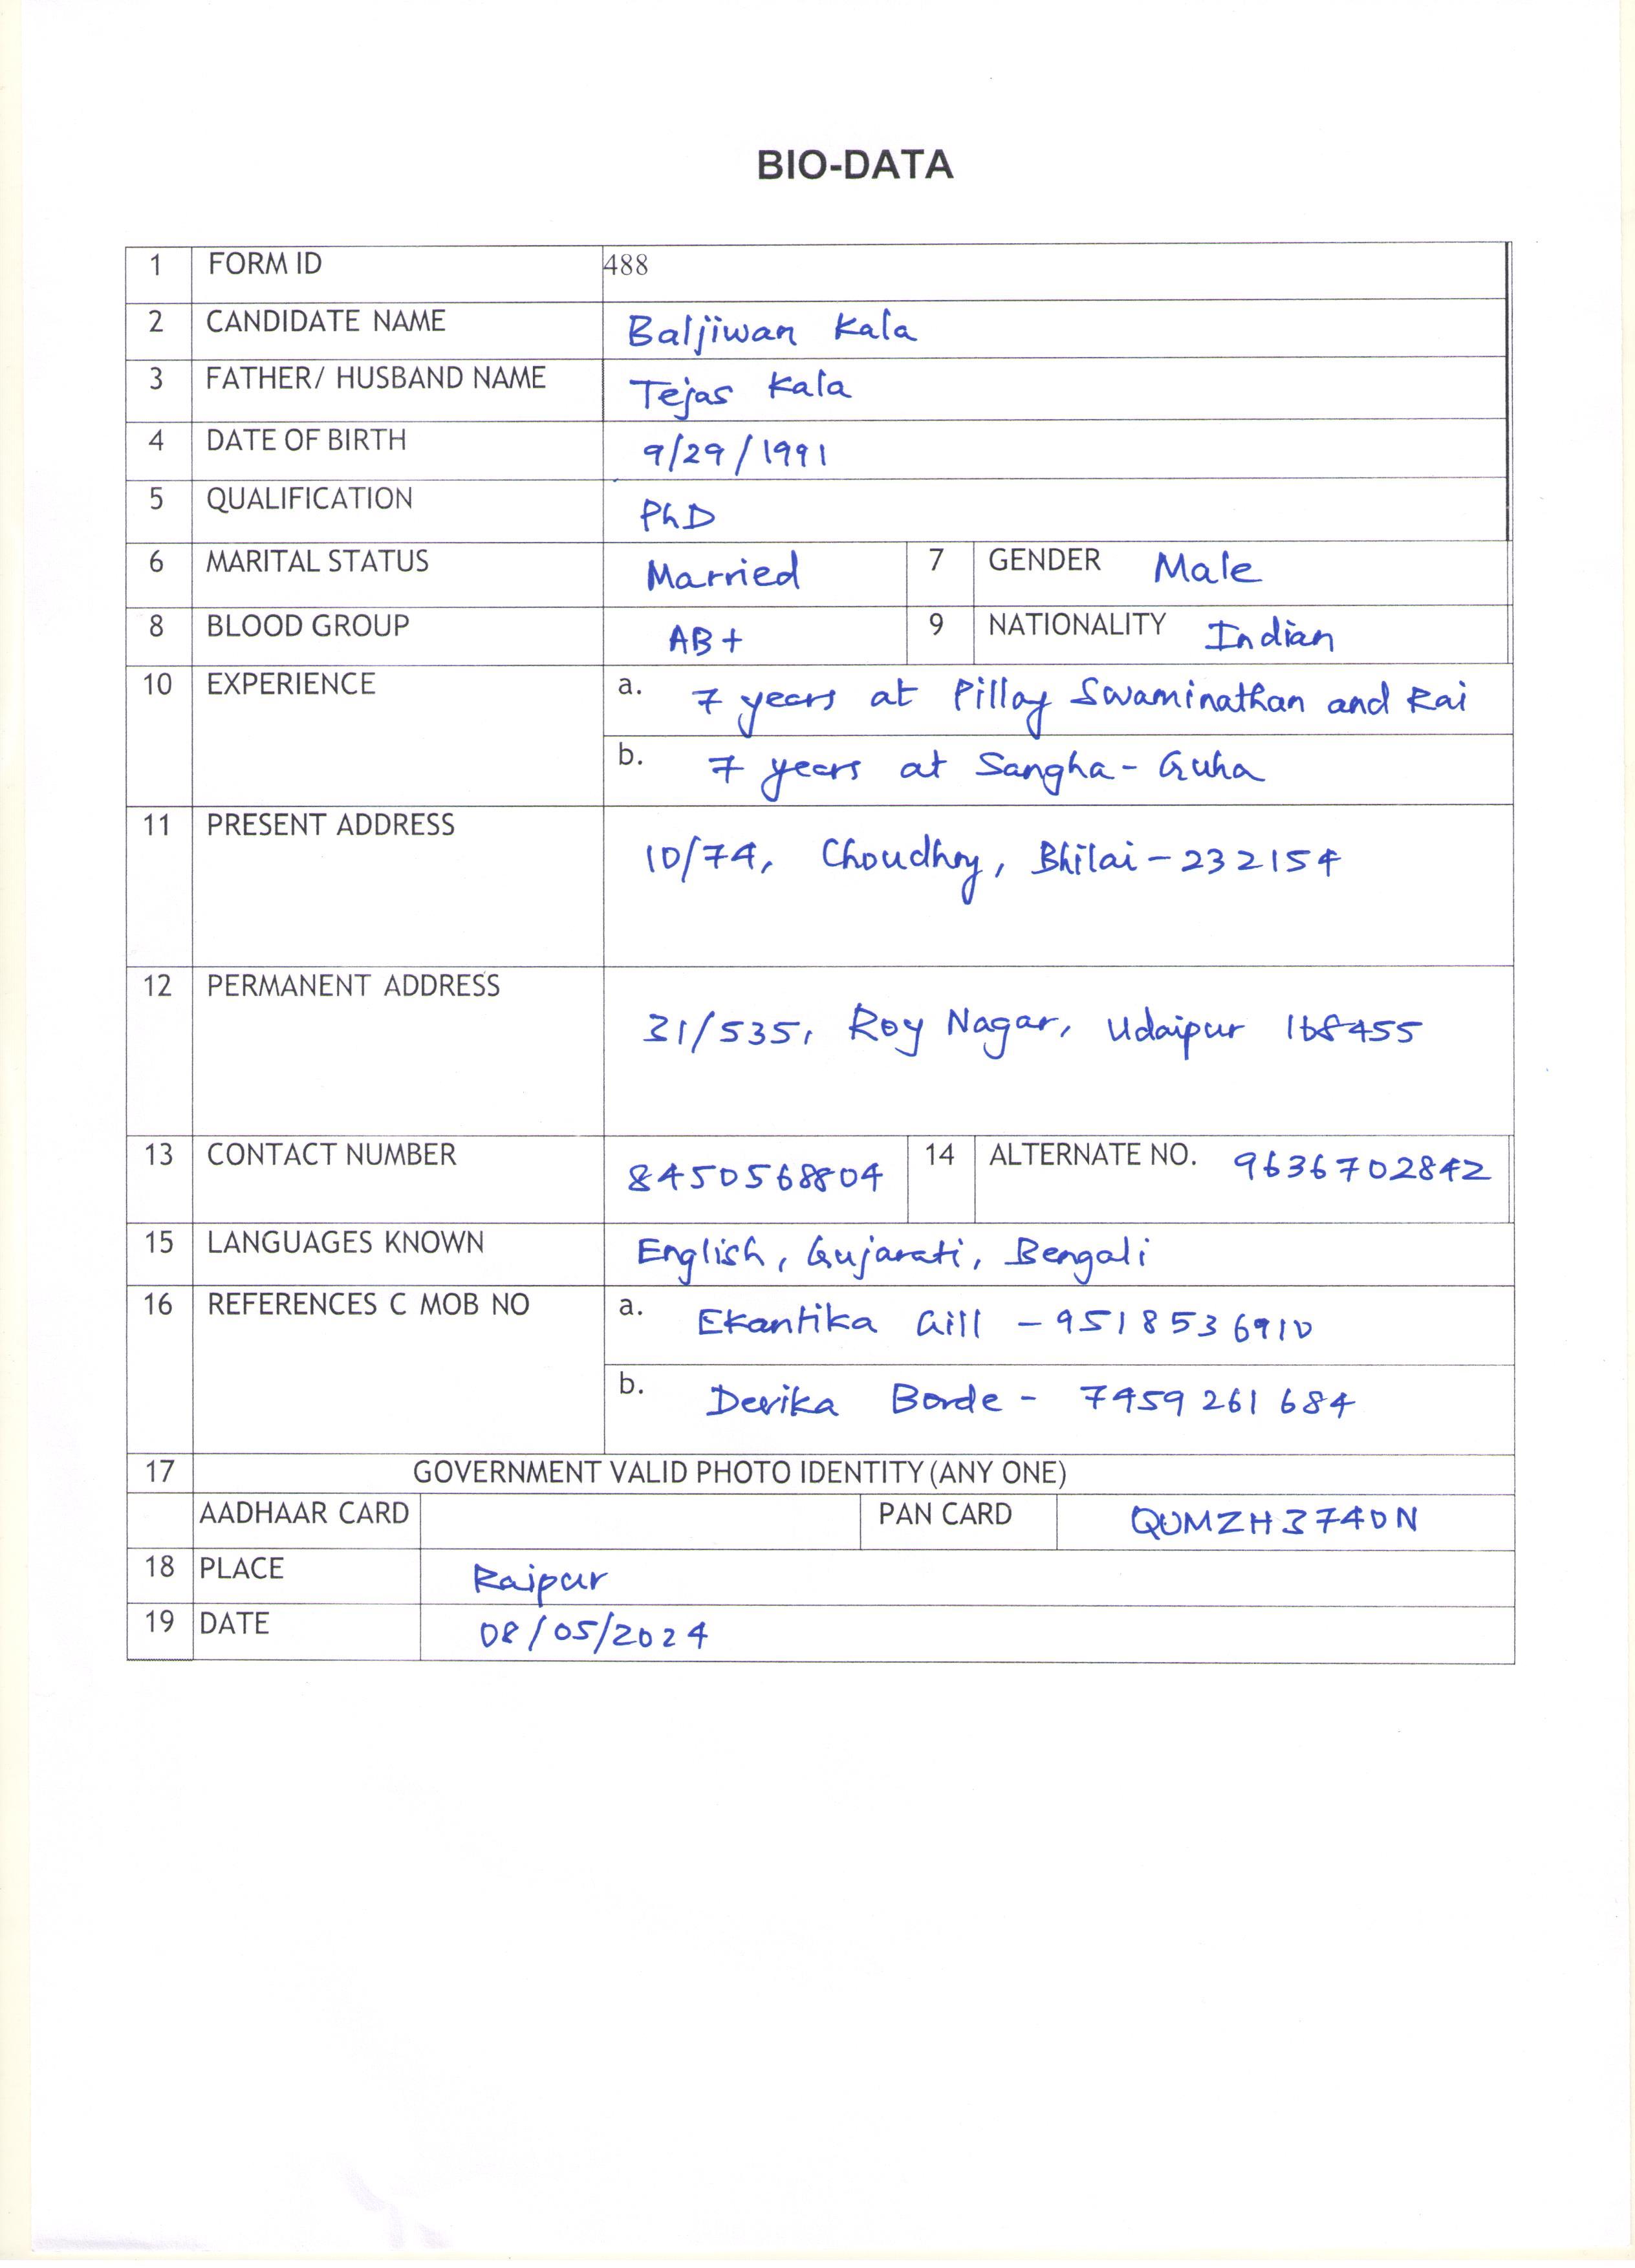 BIO-DATA
1 FORM ID 488
2 CANDIDATE NAME Baljiwan Kala
3 FATHER/ HUSBAND NAME Tejas Kala
4 DATE OF BIRTH 9/29/1991
5 QUALIFICATION PhD
6 MARITAL STATUS Married 7 GENDER Male
8 BLOOD GROUP AB+ 9 NATIONALITY Indian
10 EXPERIENCE a. 7 years at Pillay Swaminathan and Rai
b. 7 years at Sangha-Guha
11 PRESENT ADDRESS 10/74, Choudhry, Bhilai-232154
12 PERMANENT ADDRESS 31/535, Roy Nagar, Udaipur 168455
13 CONTACT NUMBER 8450568804 14 ALTERNATE NO. 9636702842
15 LANGUAGES KNOWN English, Gujarati, Bengali
16 REFERENCES C MOB NO a. Ekantika Gill - 9518536910
b. Devika Borde - 7459261684
17 GOVERNMENT VALID PHOTO IDENTITY (ANY ONE)
AADHAAR CARD PAN CARD QUMZH3740N
18 PLACE Raipur
19 DATE 08/05/2024